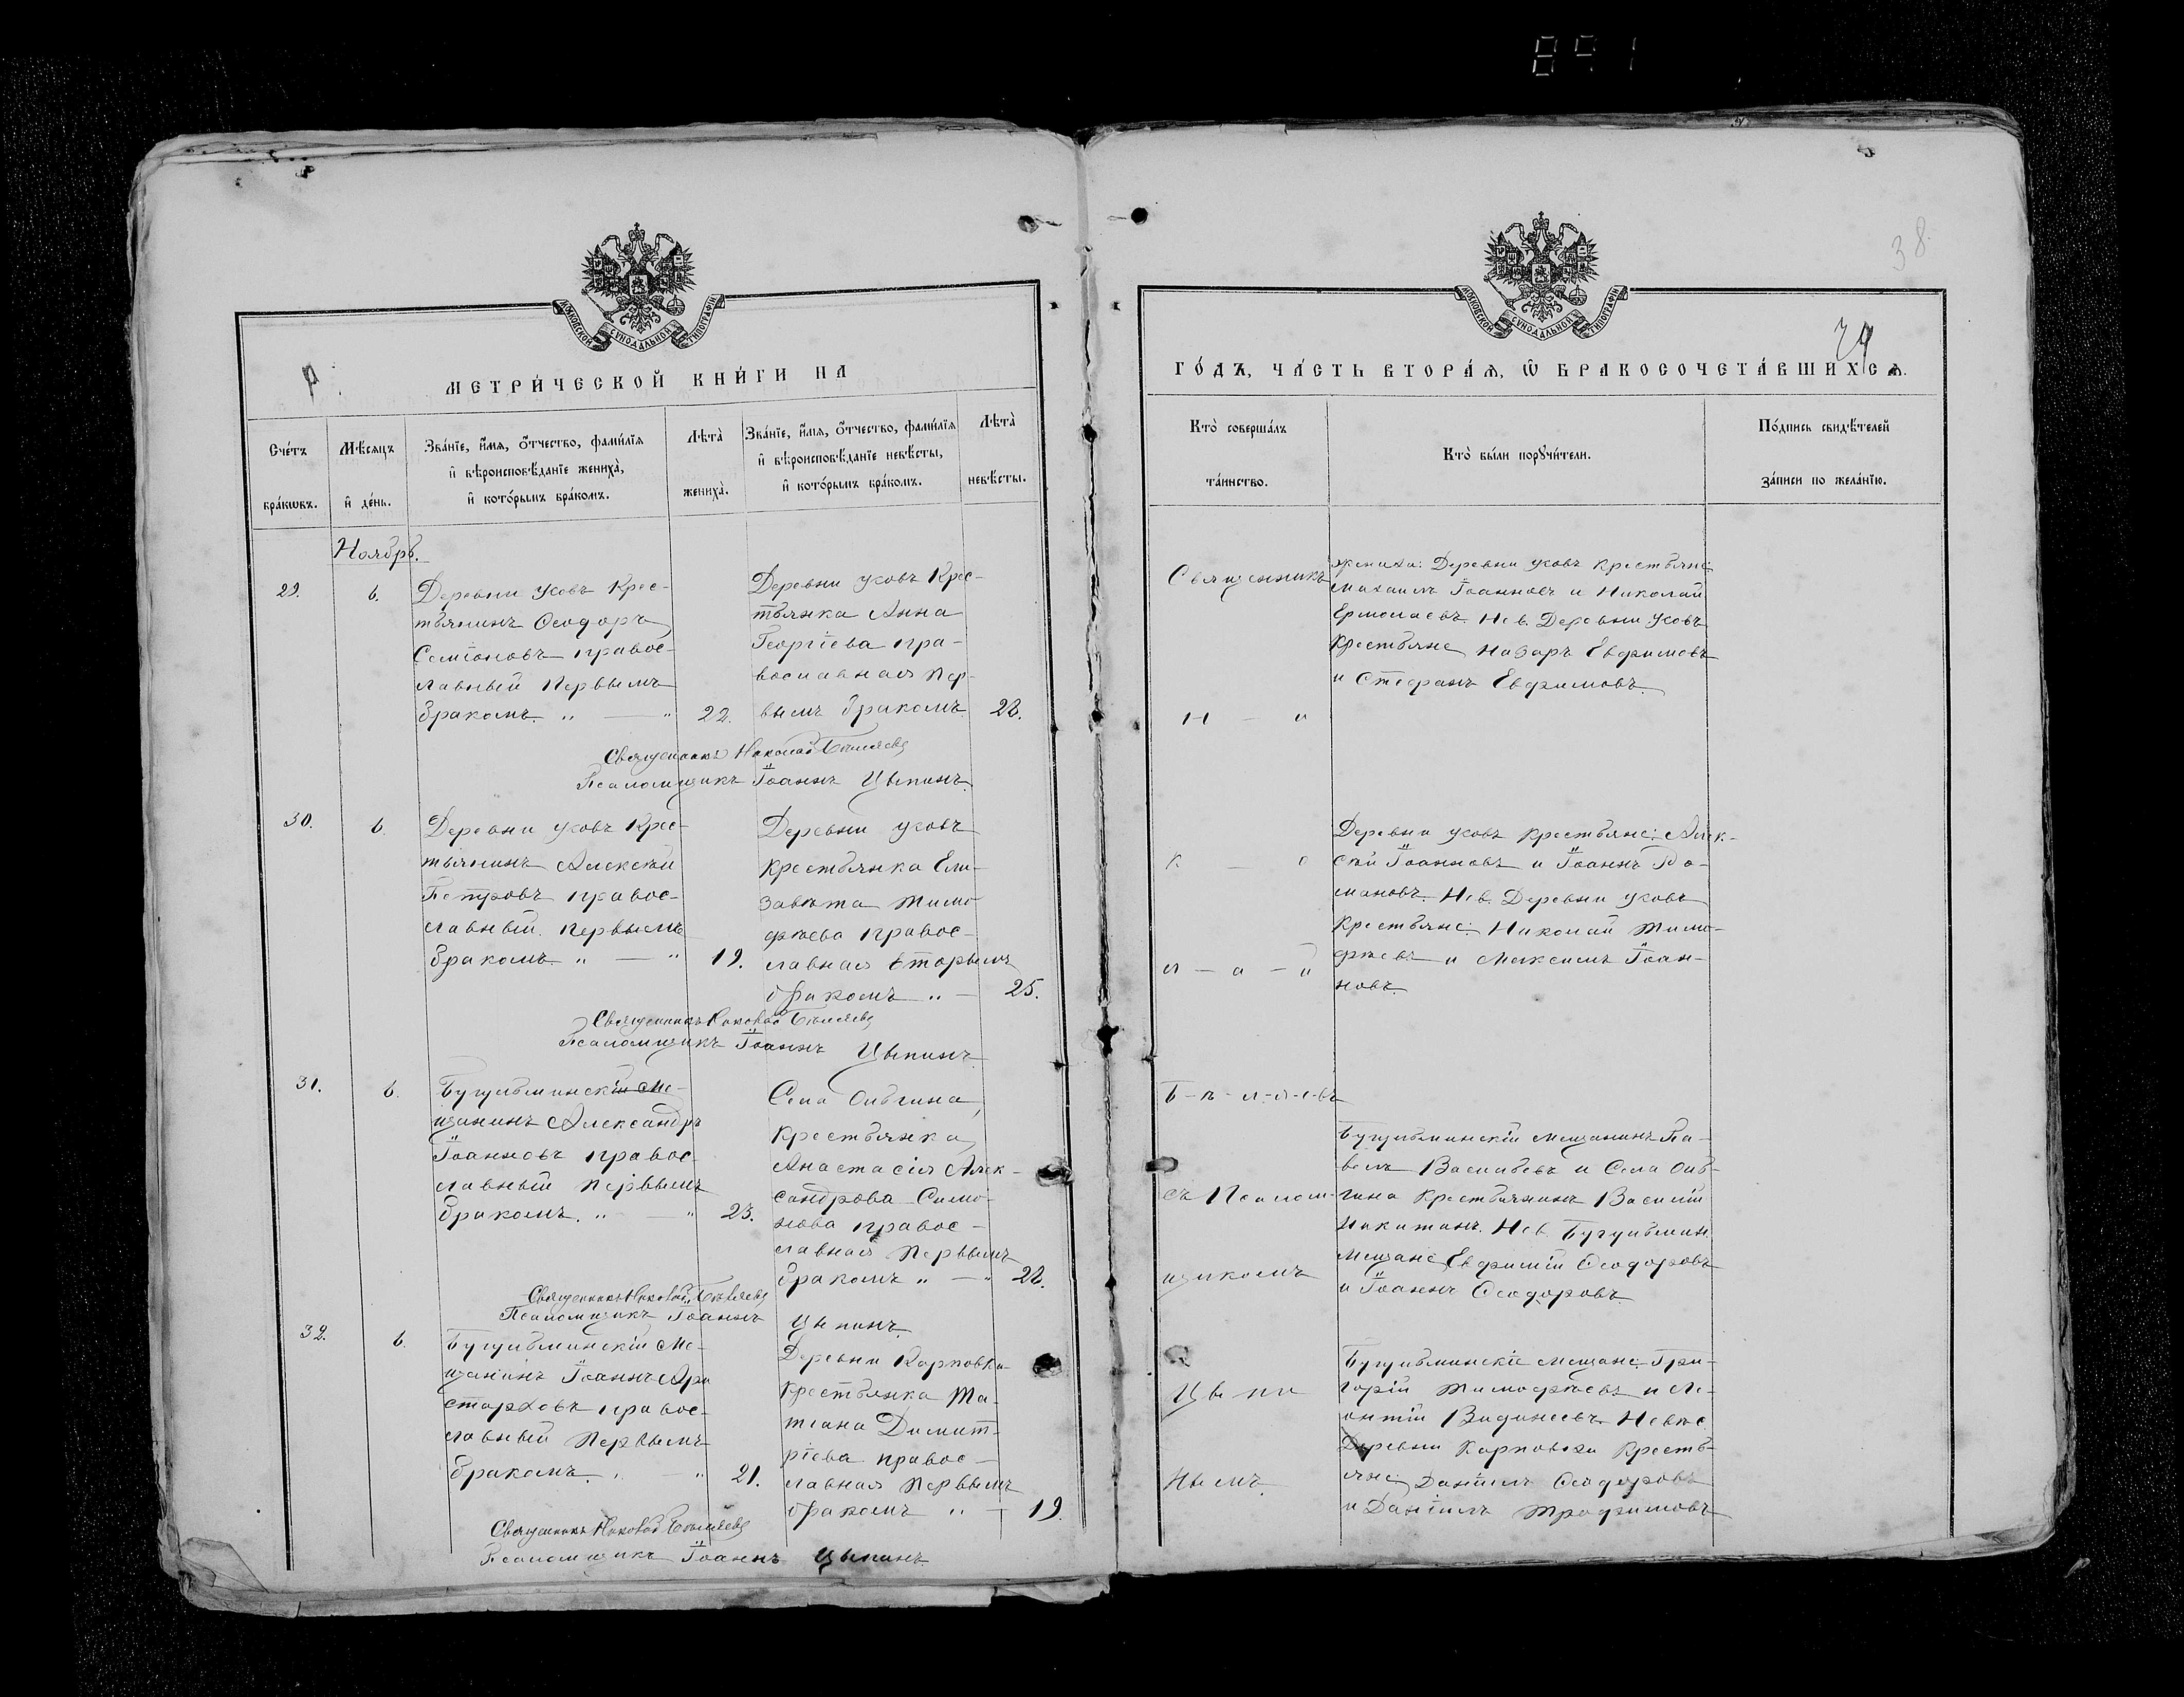 891
38
МОСКОВСКОЙ СѴНОДАЛЬНОЙ ТИПОГРАФІИ
МЕТРИ́ЧЕСКОЙ КНИ́ГИ НА
Сче́тъ бра́кωвъ.
Мѣ́сяцъ и҆ де́нь.
Зва́нїе, и҆́мѧ, ѻ҆́тчество, фами́лїѧ
и҆ вѣроисповѣ́данїе жениха̀,
и҆ кото́рымъ бра́комъ.
Лѣта̀ жениха̀.
Зва́нїе, и҆́мѧ, ѻ҆́тчество, фами́лїѧ
и҆ вѣроисповѣ́данїе невѣ́сты,
и҆ кото́рымъ бра́комъ.
Лѣта̀ невѣ́сты.
Ноябрь.
29.
6.
Деревни Усовъ Крес-
тьянинъ Ѳеодоръ
Семіоновъ правос-
лавный первымъ
бракомъ. „ — „ 22.
Деревни Усовъ Крес-
тьянка Анна
Георгіева пра-
вославная пер-
вымъ бракомъ. 22.
Священникъ Николай Бѣляевъ
Псаломщикъ Іоаннъ Цыпинъ.
30.
6.
Деревни Усовъ Крес-
тьянинъ Алексѣй
Петровъ правос-
лавный. первымъ
бракомъ. „ — „ 19.
Деревни Усовъ
крестьянка Ели-
завета Тимо-
фѣева правос-
лавная вторымъ
бракомъ „ — 25.
Священникъ Николай Бѣляевъ
Псаломщикъ Іоаннъ Цыпинъ
31.
6.
Бугульминскій Ме-
щанинъ Александръ
Іоанновъ правос-
лавный первымъ
бракомъ. „ — „ 23.
Села
Крестьянка
Анастасія Алек-
сандрова Симо-
нова правос-
лавная первымъ
бракомъ „ — „ 22.
Священникъ Николай Бѣляевъ
Псаломщикъ Іоаннъ Цыпинъ.
32.
6.
Бугульминскій Ме-
щанинъ Іоаннъ Ари
старховъ правос-
лавный первымъ
бракомъ. „ — „ 21.
Деревни Карповки
Крестьянка Та-
тіана Димит-
ріева правос-
лавная первымъ
бракомъ „ — 19.
Священникъ Николай Бѣляевъ
Псаломщикъ Іоаннъ Цыпинъ
ГО́ДЪ, ЧА́СТЬ ВТОРА́Ѧ, Ѽ БРАКОСОЧЕТА́ВШИХСѦ.
Кто̀ соверша́лъ
та́инство.
Кто̀ бы́ли порꙋчи́тели.
По́дпись свидѣ́телей
за́писи по жела́нїю.
Священникъ
Н — и
к — о
л — а — й
Б-ѣ-л-я-е-въ
съ Псалом-
щикомъ
Цыпи
нымъ.
жениха: Деревни Усовъ крестьяне:
Михаилъ Іоанновъ и Николай
Ермолаевъ. Нев. Деревни Усовъ
Крестьяне Назаръ Евфимовъ
и Стефанъ Евфимовъ.
Деревни Усовъ Крестьяне: Алек-
сѣй Іоанновъ и Іоаннъ Ро-
мановъ. Нев. Деревни Усовъ
Крестьяне: Николай Тимо-
фѣевъ и Максимъ Іоан-
новъ.
Бугульминскій мещанинъ Па-
велъ Васильевъ и Села
Крестьянинъ Василій
Никитинъ. Нев. Бугульмин.
Мещане Евфимій Ѳеодоровъ
и Іоаннъ Ѳеодоровъ.
Бугульминскіе мещане: Гри-
горій Тимофѣевъ и Ле-
онтій Невѣс
Деревни Карповки Кресть-
яне: Даніилъ Ѳеодоровъ
и Даніилъ Трофимовъ